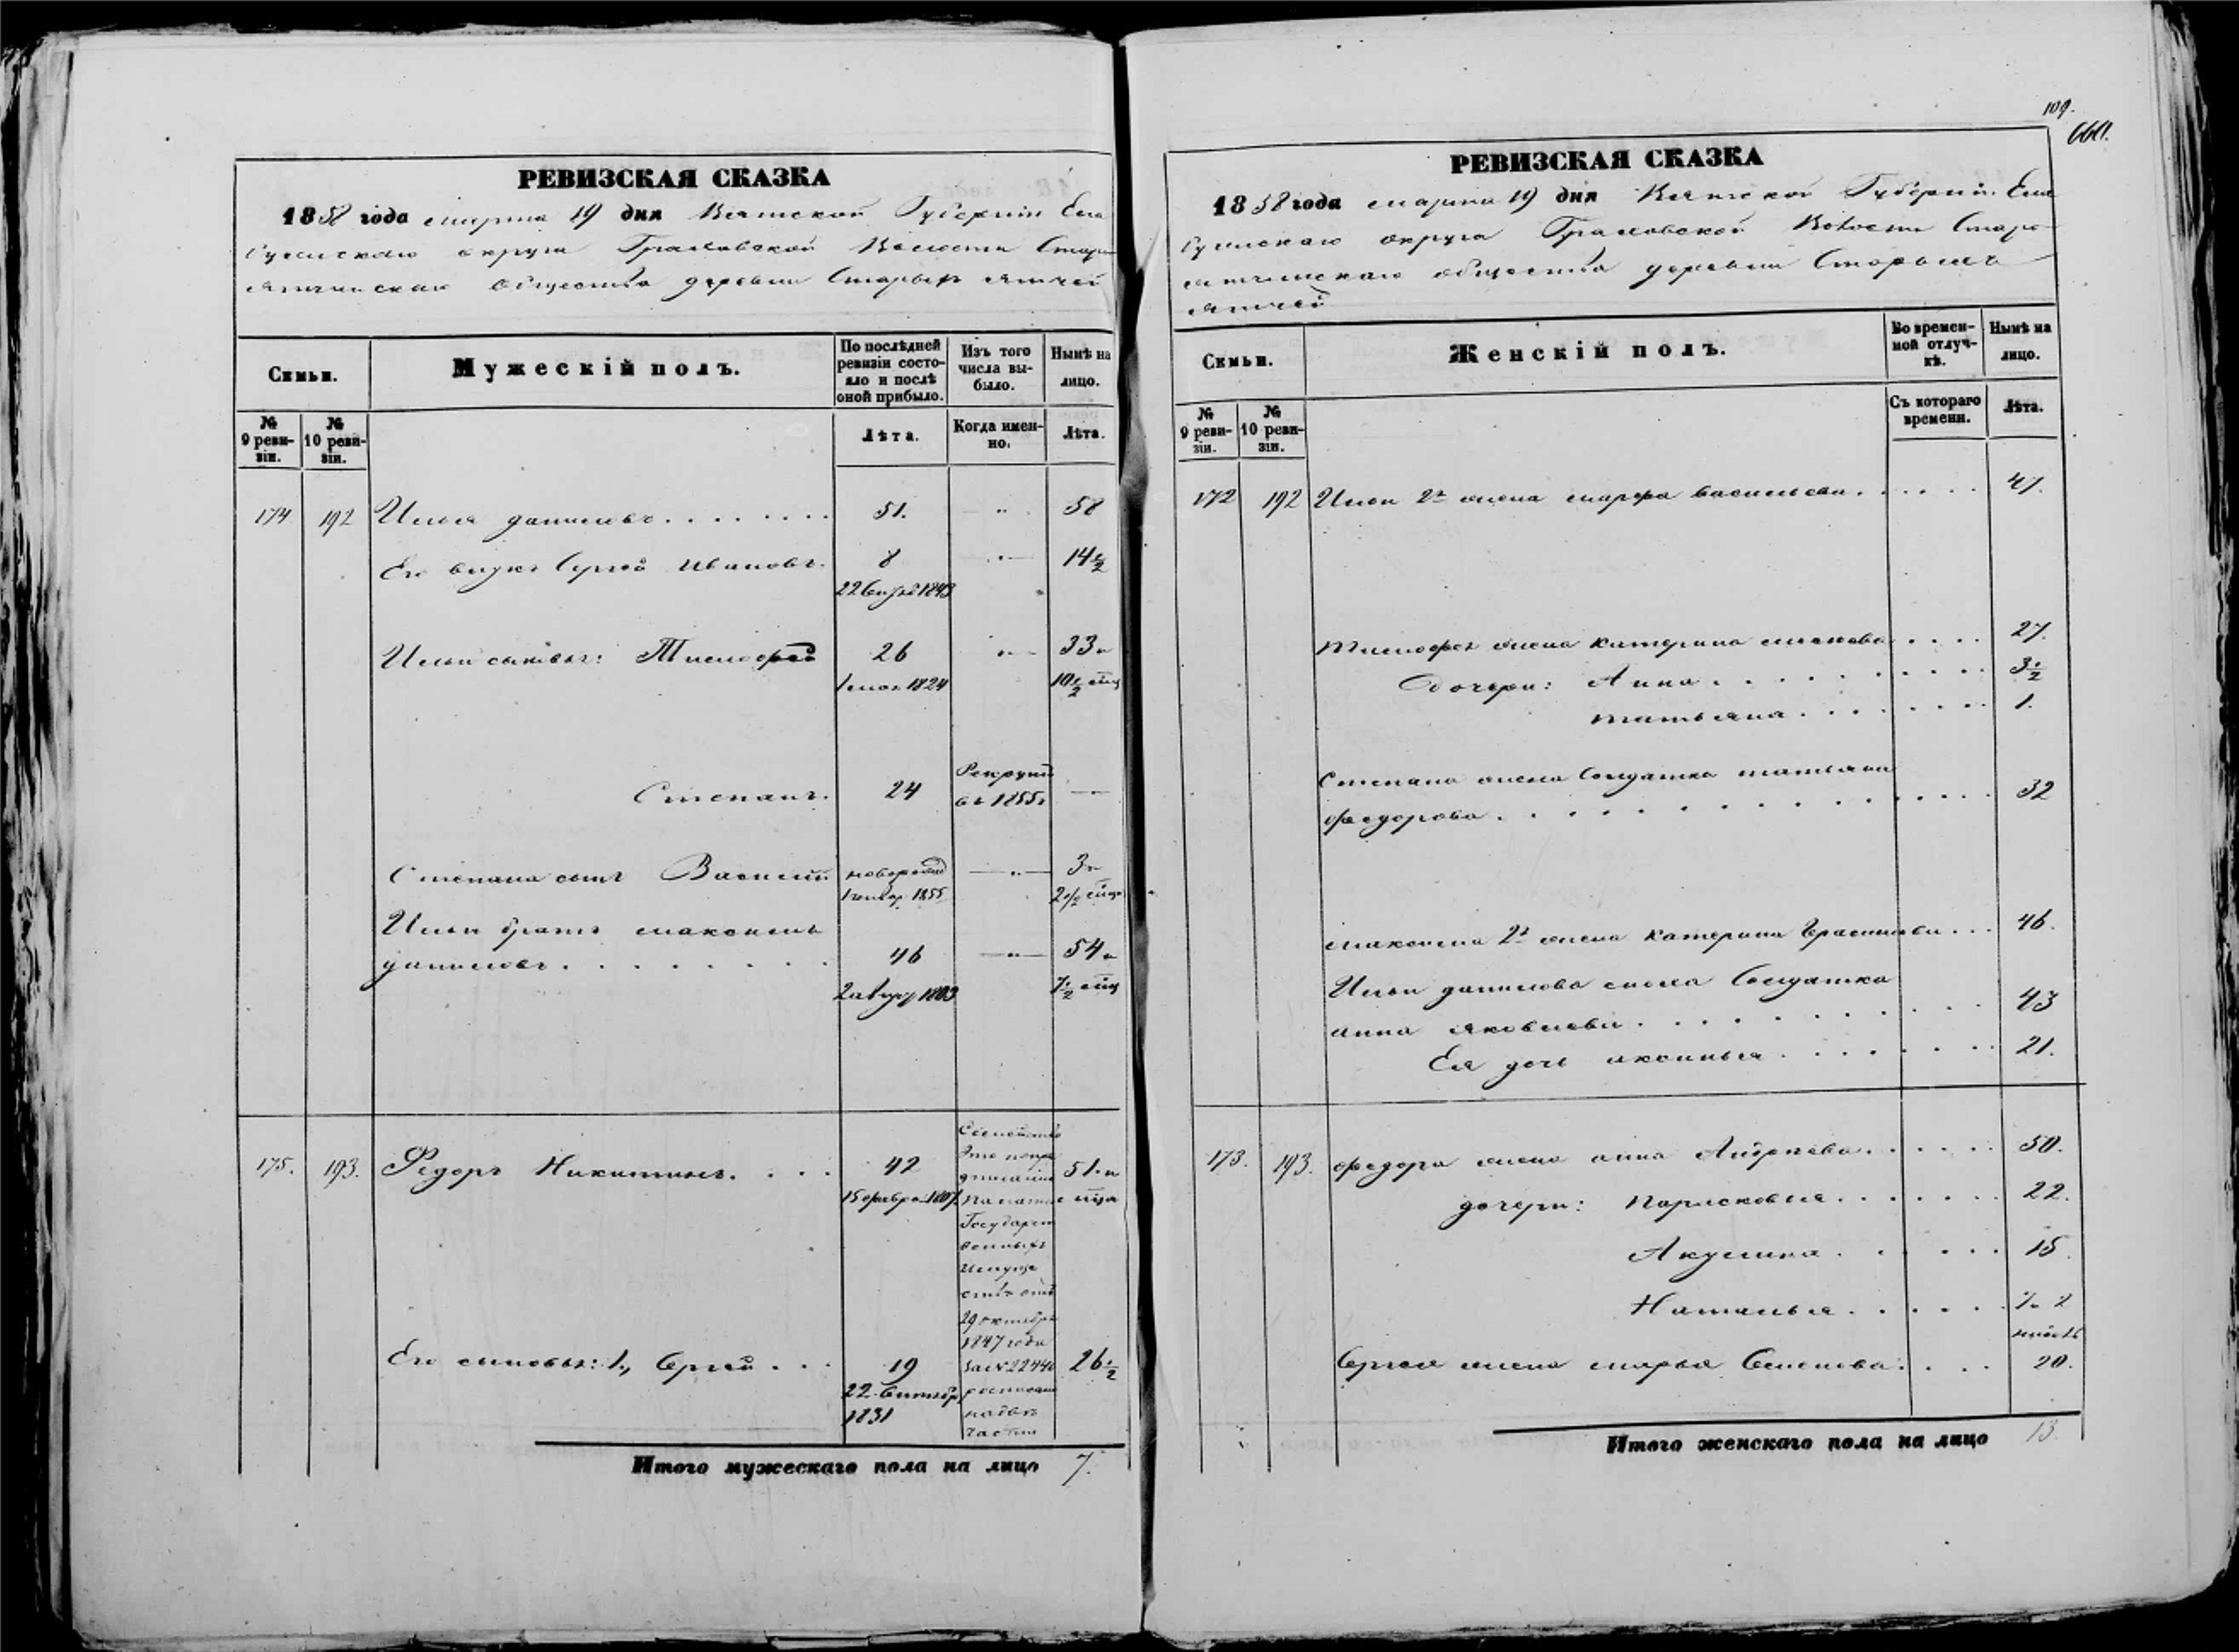 РЕВИЗСКАЯ СКАЗКА
1858 года марта 19 дня Вятской Губернiи Ела
бужскаго округа Граховской Волости Старо
ятчинскаго общества деревни Старыхъ ятчей
Семьи.
Мужескiй полъ.
По послѣдней ревизiи состояло и послѣ оной прибыло.
Изъ того числа выбыло.
Нынѣ на лицо.
№ 9 ревизiи.
№ 10 ревизiи.
Лѣта.
Когда именно.
Лѣта.
174 192 Илья даниловъ. 51. 58
Его внукъ Сергей Ивановъ. 8 14½
1843
Ильи сыновья: Тимофей 26 33 и
1 мая 1824 10½ мѣц
Степанъ. 24 Рекрутъ въ 1855 г
Степана сынъ Василiй новорожд 3 и
1 январ 1855 2½ мѣца
Ильи братъ максимъ
даниловъ. 46 54 и
1803 7½ мѣц
175. 193. Федоръ Никитинъ. 42 51. и
15 февра. 1807. мца
Семейство
Это по пред
писанiю
Палаты
Государст
венныхъ
Имуще
ствъ отъ
29 октября
1847 года
за № 22440
Его сыновья: 1., Сергей 19 26½
22 Сентября
1831
частям
Итого мужескаго пола на лицо 7.
109.
660.
РЕВИЗСКАЯ СКАЗКА
1858 года марта 19 дня Вятской Губернiи Ела
бужскаго округа Граховской Волости Старо
ятчинскаго общества деревни Старыхъ
ятчей
Семьи.
Женскiй полъ.
Во временной отлучкѣ.
Нынѣ на лицо.
№ 9 ревизiи.
№ 10 ревизiи.
Съ котораго времени.
Лѣта.
172 192 Ильи 2я жена марфа васильева. 47.
Тимофея жена катерина 27.
дочери: Анна. 3½
татьяна. 1.
Степана жена Солдатка татьяна
федорова. 32
максима 2я жена катерина 46.
Ильи данилова Солдатка
анна яковлева. 43
Ея дочь аксинья. 21.
173. 193. федора жена анна 50.
дочери: парасковья. 22.
Акулина. 15.
Наталья. 7 и 2
Сергея жена марья Семенова. 20.
Итого женскаго пола на лицо 13